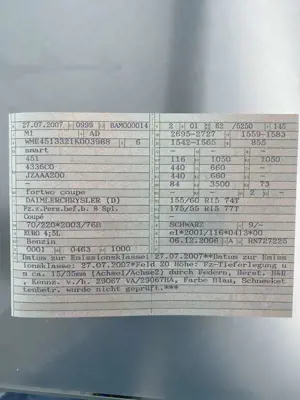 27.07.2007 0999 BAM000014
M1 AD
WME4513321K003988 6
smart
451
4336C0
JZAAA2D0
-
fortwo coupe
DAIMLERCHRYSLER (D)
Fz.z.Pers.bef.b. 8 Spl.
Coupé
70/220*2003/76B
EURO 4;5L
Benzin
0001 0463 1000
2 01 62 /5250 145
2695-2727 1559-1583
1542-1565 855
- - -
116 1050 1050
440 660 -
440 660 -
84 3500 73
- 2 -
155/60 R15 74T
175/55 R15 77T
-
SCHWARZ 9/-
e1*2001/116*0413*00
06.12.2006 A RN727225
Datum zur Emissionsklasse: 27.07.2007**Datum zur Emis
sionsklasse: 27.07.2007*Feld 20 Höhe: Fz-Tieferlegung u
m ca. 15/35mm (Achse1/Achse2) durch Federn, Herst. H&R
, Kennz. v./h. 29067 VA/29067HA, Farbe Blau, Schneeket
tenbetr. wurde nicht geprüft.***